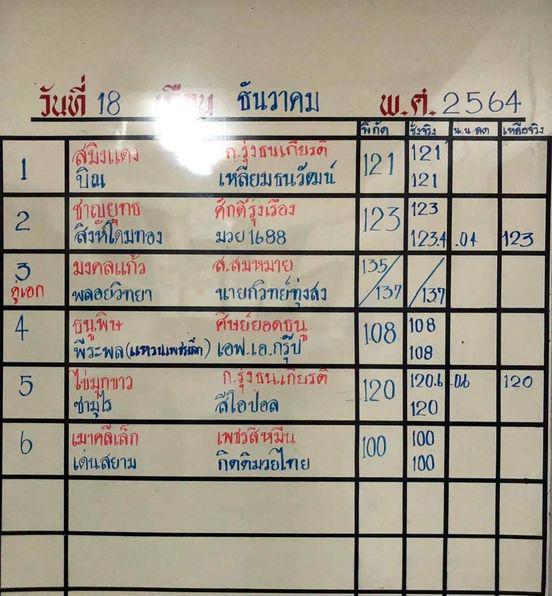 วันที่ 18 เดือน ธันวาคม พ.ศ. 2564
พิกัด ชั่งจริง น.น.ลด เหลือจริง
1 สมิงแดง ก.รุ่งธนเกียรติ 121 121
บิณ เหลี่ยมธนวัฒน์ 121
2 ชาญยุทธ ศักดิ์รุ่งเรือง 123 123
สิงห์โดมทอง มวย1688 123.4 .04 123
3 มงคลแก้ว ส.สมหมาย 135
คู่เอก พลอยวิทยา นายกวิทย์ทุ่งสง /137 /137
4 ธนูพิษ ศิษย์ยอดธนู 108 108
พีระพล เอฟ.เอ.กรุ๊ป 108
5 ไข่มุกขาว ก.รุ่งธนเกียรติ 120 120.6 .06 120
ซามูไร สีโอปอล 120
6 เมาคลีเล็ก เพชรสี่หมื่น 100 100
เด่นสยาม กิตติมวยไทย 100